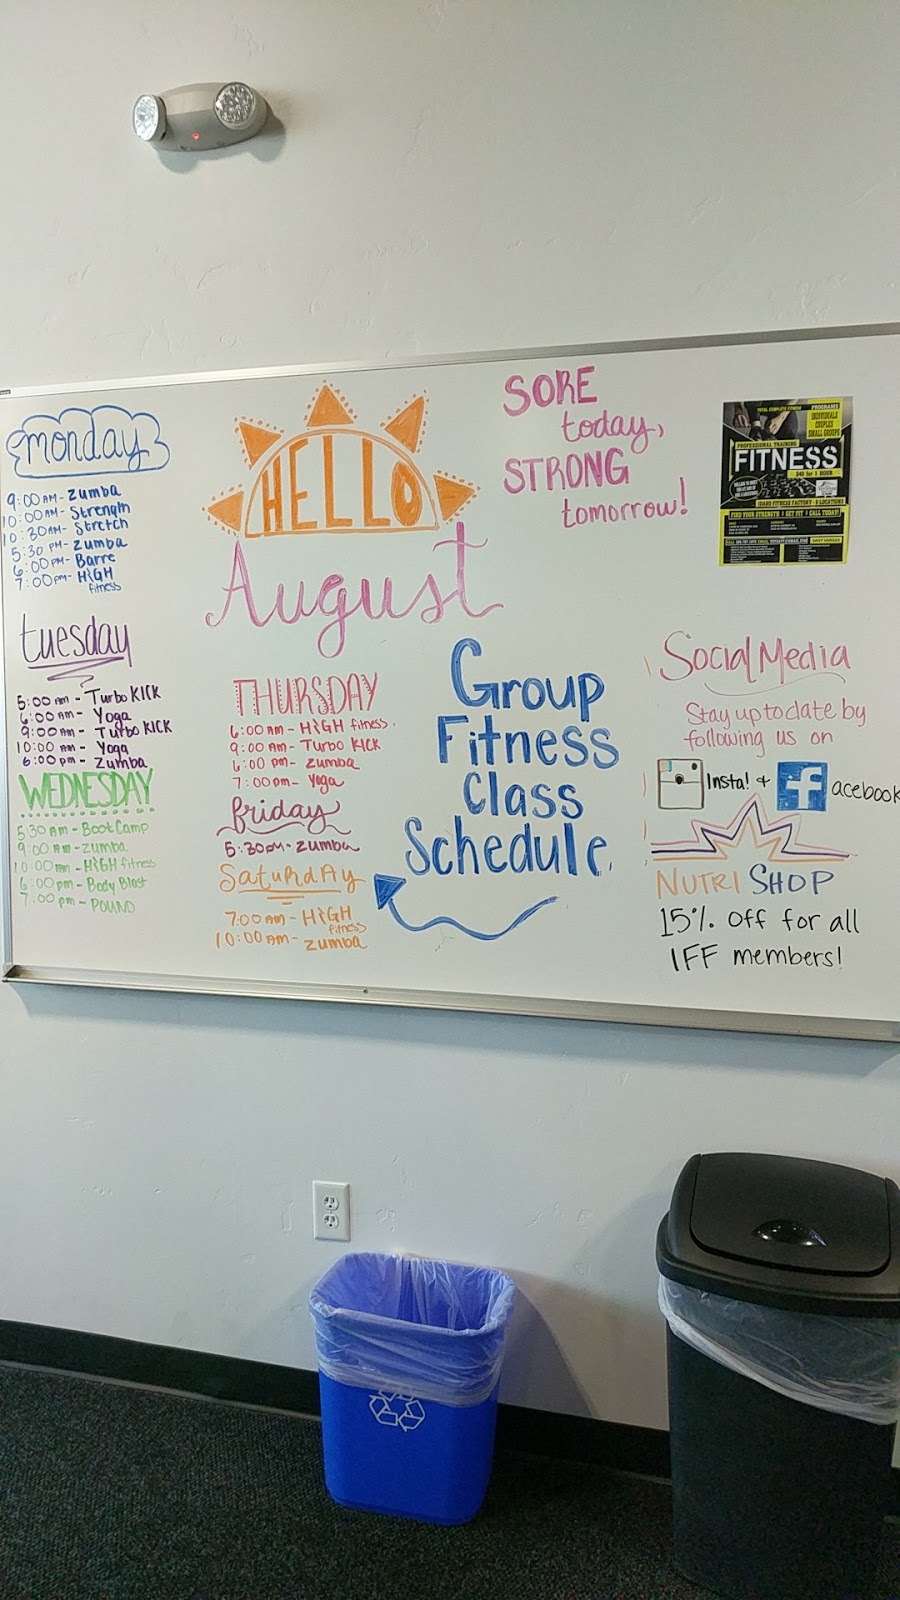 monday
9:00 AM - Zumba
10:00 AM - Strength
10:30 AM - Stretch
5:30 PM - Zumba
6:00 PM - Barre
7:00 pm - HIGH
fitness
tuesday
5:00 AM - Turbo KICK
6:00 AM - Yoga
9:00 AM - Turbo KICK
10:00 AM - Yoga
6:00 pm - Zumba
WEDNESDAY
5:30 AM - Boot Camp
9:00 AM - Zumba
10:00 AM - HIGH fitness
6:00 pm - Body Blast
7:00 pm - POUND
HELLO
August
THURSDAY
6:00 AM - HIGH fitness
9:00 AM - Turbo KICK
6:00 pm - Zumba
7:00 pm - Yoga
friday
5:30 PM - Zumba
SATURDAY
7:00 AM - HIGH
fitness
10:00 AM - Zumba
Group
Fitness
Class
Schedule
SORE
today,
STRONG
tomorrow!
TOTAL COMPLETE FITNESS
PROGRAMS
INDIVIDUALS
COUPLES
SMALL GROUPS
PROFESSIONAL TRAINING
FITNESS
$40 for 1 HOUR
IDAHO FITNESS FACTORY - 6 LOCATIONS
FIND YOUR STRENGTH GET FIT CALL TODAY!
Social Media
Stay up to date by
following us on
Insta! + facebook
NUTRISHOP
15% off for all
IFF members!